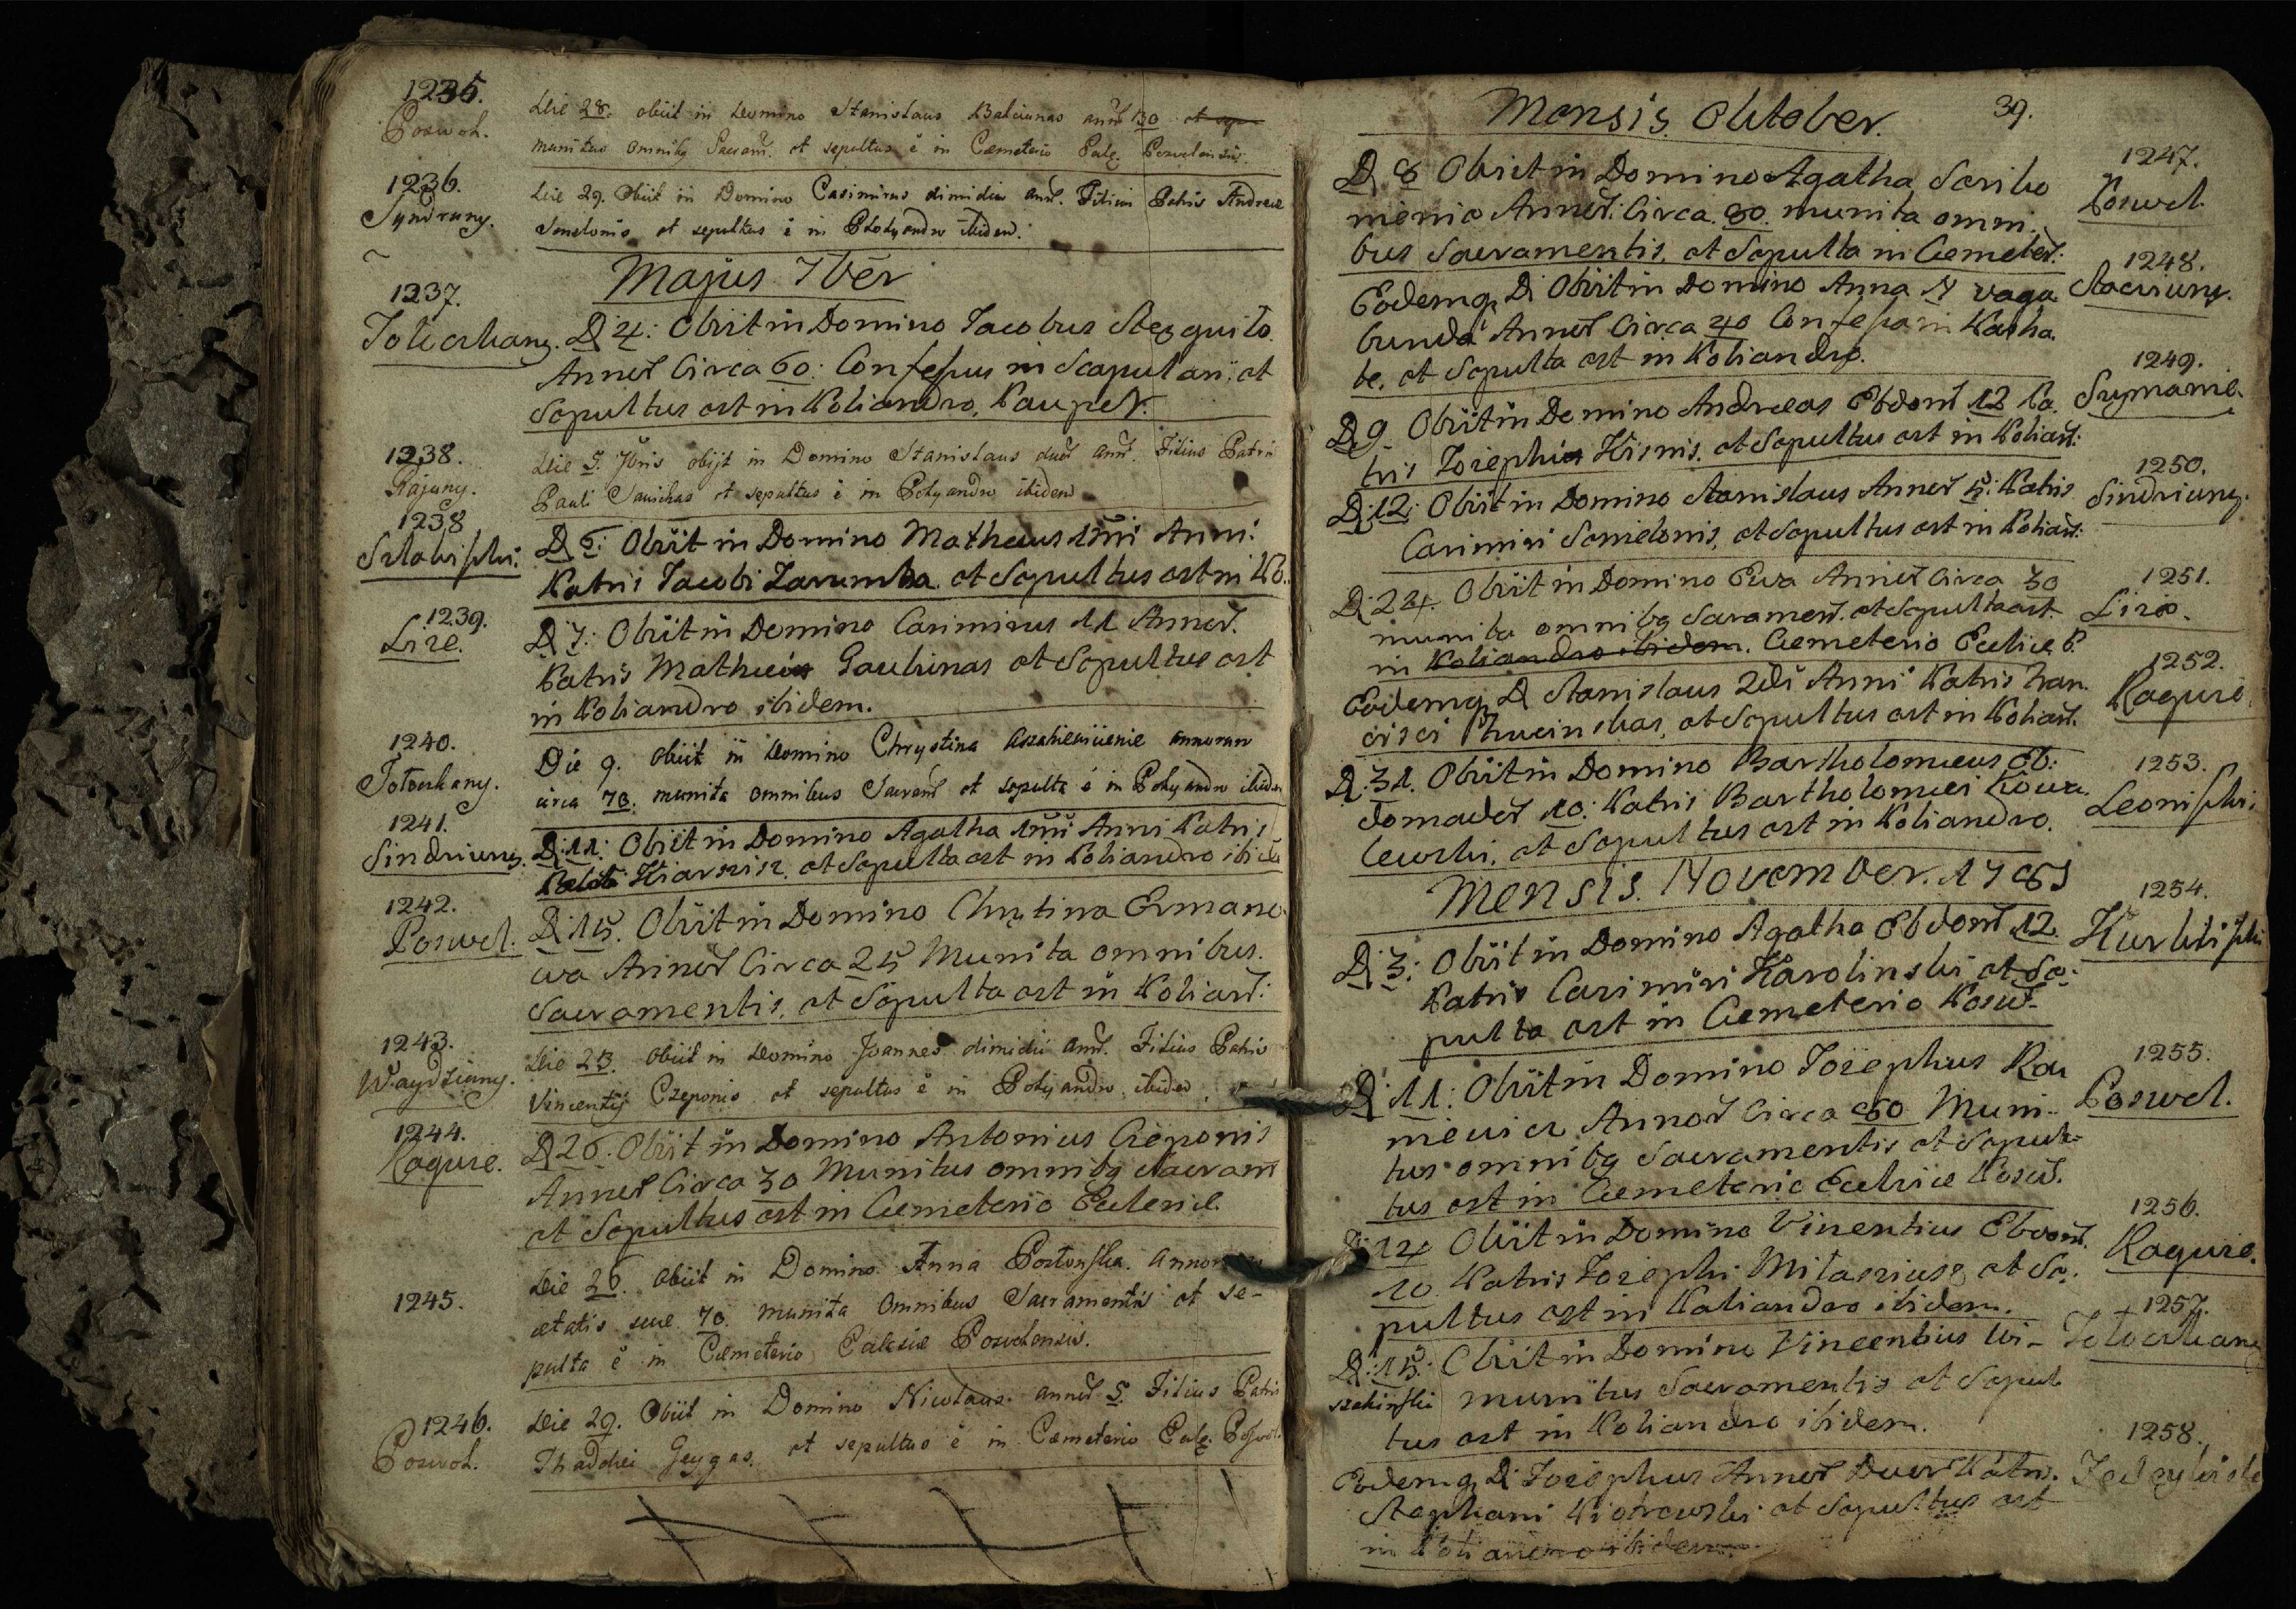 1235.
Poswol.
Die 28. obiit in Domino Stanislaus Balciunas anñ 30 et
munitus omnibq Sacram. et sepultus ē in Cæmeterio Ecclę. Poswolensis.
1236.
Syndriuny.
Die 29. Obiit in Domino Casimirus dimidii anñ. Filius Patris Andreæ
Smelonis et sepultus ē in Polyandro ibidem.
Majus 7bēr
1237.
D 4: Obiit in Domino Jacobus
Annoř Circa 60: Confessus in Scapulari, et
Sepultus est in Poliandro, Pauper.
1238.
Pajuny.
Die 5. 7bris obijt in Domino Stanislaus duoř anñ. Filius Patris
Pauli Sawickas et sepultus ē in Polyandro ibidem
1238
D 6: Obiit in Domino Matheus 1mi Anni.
Patris Jacobi Zarumba et Sepultus est in Po.
1239.
Lize.
D 7: Obiit in Domino Casimirus 11 Annoř.
Patris Mathei Gaulunas et Sepultus est
in Poliandro ibidem.
1240.
Totorkany.
Die 9. obiit in Domino Chrystina annorum
circa 70. munita omnibus Sacram̃ et sepulta ē in Polyandro ibidem
1241.
Sindriuny.
D:11: Obiit in Domino Agatha 1mi Anni Patris
et Sepulta est in Poliandro ibide
1242.
Poswol.
D:15. Obiit in Domino Chrystina Ermano
wa Annoř Circa 25 Munita omnibus.
Sacramentis, et Sepulta est in Poliand:
1243.
Waydziuny.
Die 23. obiit in Domino Joannes dimidii anñ. Filius Patris
Vincentij Czeponis et sepultus ē in Polyandro ibidem
1244.
Ragure.
D 26. Obiit in Domino Antonius Cieponis
Annoř Circa 30 Munitus omnibq Sacram̃
et Sepultus est in Cæmeterio Eclesiæ.
1245.
Die 26. obiit in Domino Anna annorum
ætatis suæ 70. munita omnibus Sacramentis et se-
pulta ē in Cæmeterio Eclesiæ Poswolensis.
1246.
Poswol.
Die 29. Obiit in Domino Nicolaus annoř 5. Filius Patris
Thaddei Geygas. et sepultus ē in Cæmeterio Eclę. Poswol.
Mensis Oktober.
39.
D 8 Obiit in Domino Agatha Skribo
mienia Annoř: Circa 80. munita omni.
bus Sacramentis, et Sepulta in Cemeter:
1247.
Poswol.
Eodemq D Obiit in Domino Anna N vaga
bunda Annoř Circa 40 Confessa in Pascha.
te. et Sepulta est in Poliandro.
1248.
D 9 Obiit in Domino Andreas Ebdom̃ 12 Pa.
tris Josephi Kisnis. et Sepultus est in Poliand:
1249.
D:12: Obiit in Domino Stanislaus Annoř 5: Patris
Casimiri Smelonis, et Sepultus est in Poliand:
1250.
Sindriuny.
D:24. Obiit in Domino Eva Annoř Circa 30
munita omnibq Sacramen̄. et Sepulta est.
in Poliandro ibidem. Cemeterio Ecclice P.
1251.
Lize.
Eodemq D Stanislaus 2di Anni Patris Fran.
cisci et Sepultus est in Poliand.
1252.
Ragure.
D:31. Obiit in Domino Bartholomeus Eb:
domadař 10: Patris Bartholomei Kowa.
lewski, et Sepultus est in Poliandro.
1253.
Leoniszki.
Mensis. November. 1783
D 3: Obiit in Domino Agatha Ebdom̃ 12.
Patris Casimiri Karolinski, et Se:
pulta est in Cemeterio Posw̃.
1254.
D 11: Obiit in Domino Josephus Ra
mewicz Annoř Circa 80 Muni-
tus omnibq Sacramentis et Sepul-
tus est in Cemeterio Eclesiæ Posw̃.
1255.
Poswol.
D 12 Obiit in Domino Vincentius Ebdom̃.
10 Patris Josephi Milasziusz et Se.
pultus est in Poliandro ibidem.
1256.
Ragure.
D:15: Obiit in Domino Vincentius Wi-
munitus Sacramentis et Sepul
tus est in Poliandro ibidem.
1257.
Totorkany
Eodemq D: Josephus Annoř Duoř Patris.
Stephani Piotrowski et Sepultus est
in Poliandro ibidem.
1258.